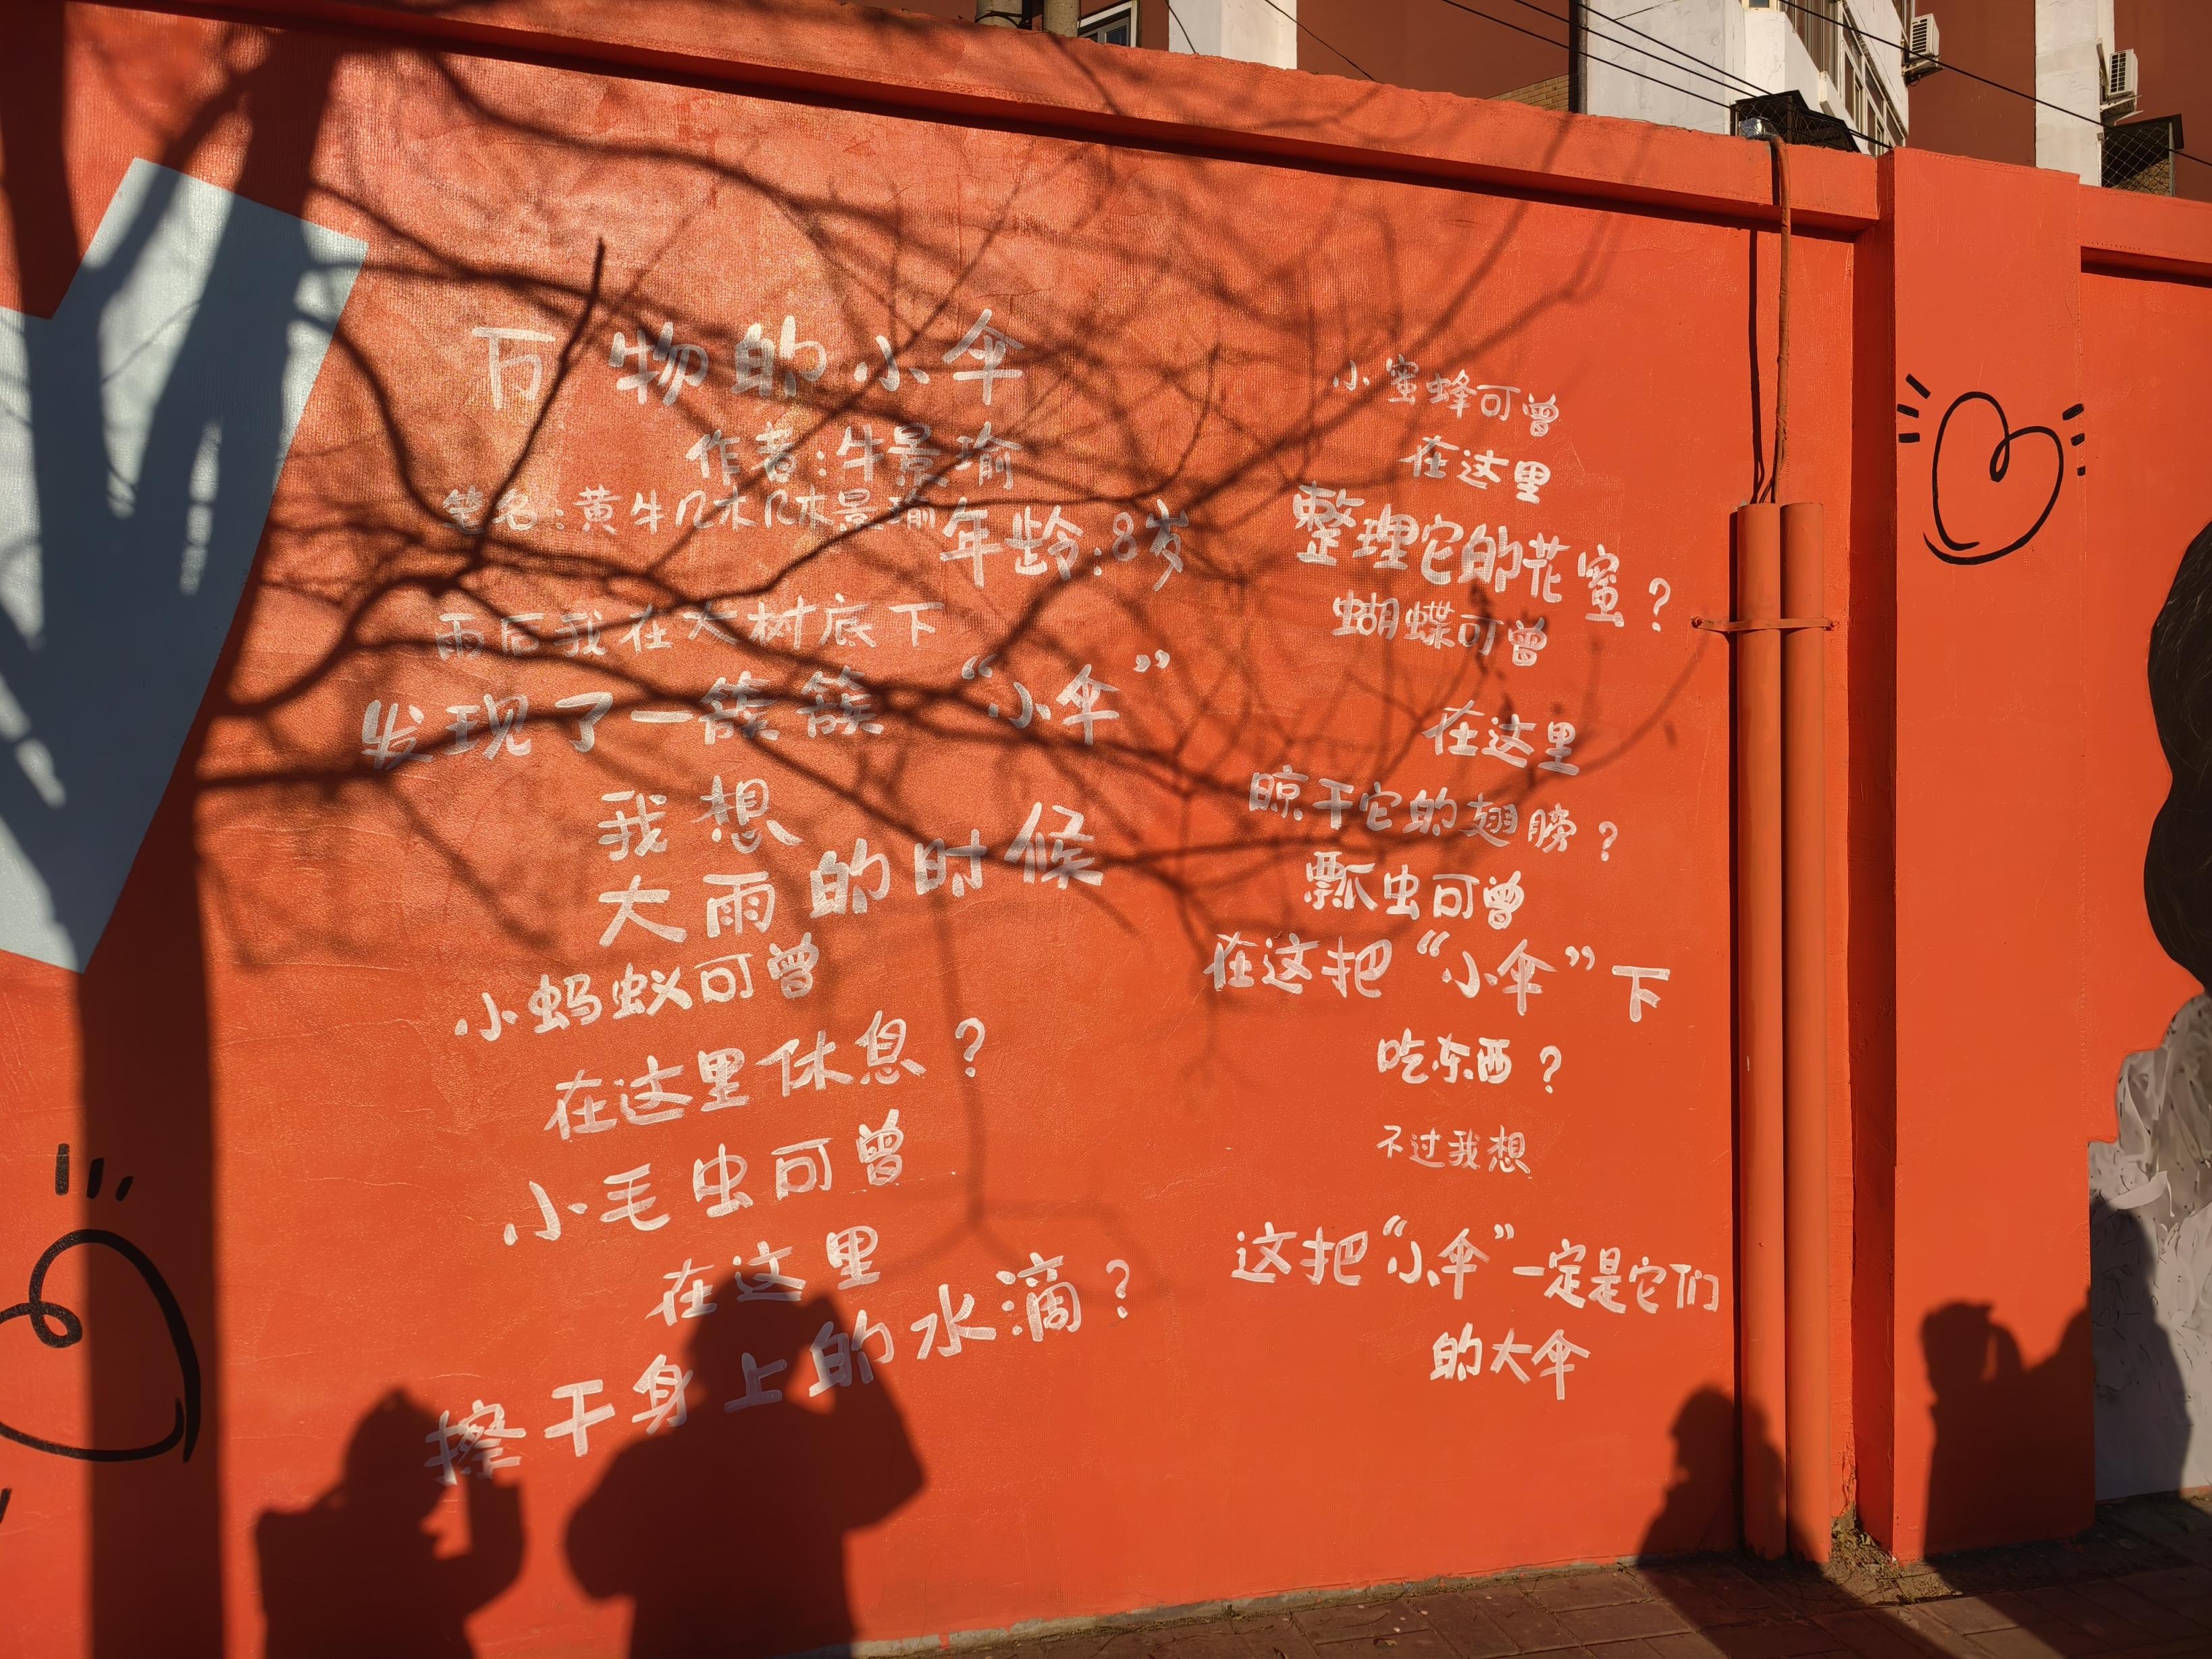 万物的小伞
作者:牛景瑜
笔名:黄牛几木几木景瑜
年龄:8岁
雨后我在大树底下
发现了一簇簇“小伞”
我想
大雨的时候
小蚂蚁可曾
在这里休息?
小毛虫可曾
在这里
擦干身上的水滴?
小蜜蜂可曾
在这里
整理它的花蜜?
蝴蝶可曾
在这里
晾干它的翅膀?
瓢虫可曾
在这把“小伞”下
吃东西?
不过我想
这把“小伞”一定是它们
的大伞